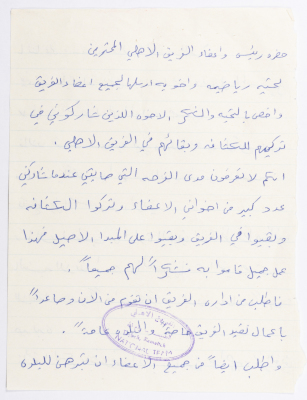 حضرة رئيس واعضاء الفريق الاهلي المحترمين
تحية رياضية واخوية ارسلها لجميع اعضاء الفريق
واخص بالتحية والشكر الاخوة اللذين شاركوني في
تركهم للكشافة وبقائهم في الفريق الاهلي .
انكم لا تعرفون مدى الفرحة التي صابتني عندما شاركني
عدد كبير من اخواني الاعضاء وتركوا الكشافة
وبقيوا في الفريق وبقيوا على المبدا الاصيل فهذا
عمل جميل قاموا به فشكراً لهم جميعاً .
فاطلب من ادارة الفريق ان تقوم من الان وصاعداً
باعمال تفيد الفريق خاصة والبلد عامة .
واطلب ايضاً من جميع الاعضاء ان